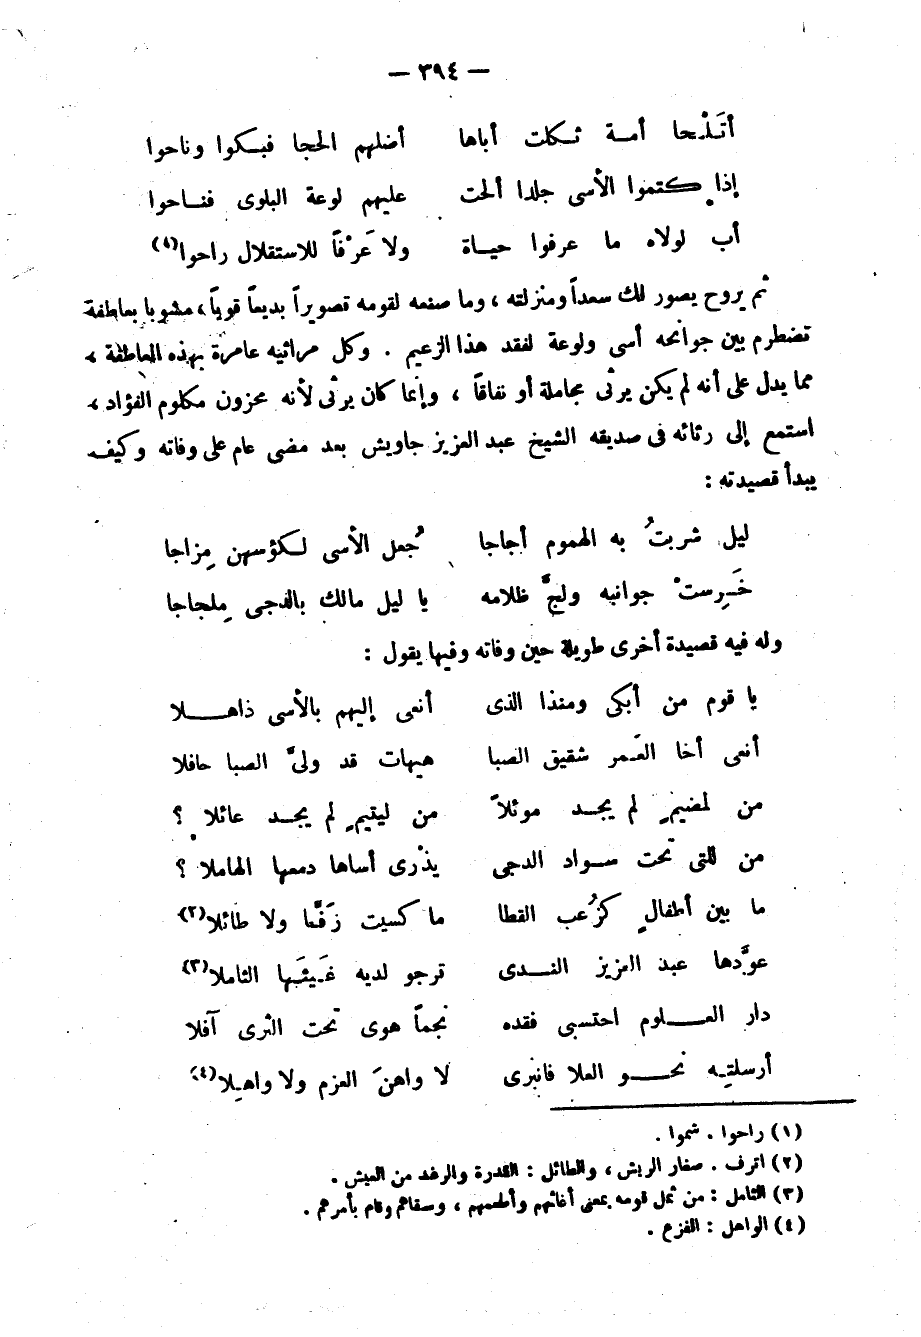 — ٣٩٤ —
أتَلْحا أمة ثكلت أباها أضلهم الحجا فبكوا وناحوا
إذا كتموا الأسى جلدا ألحت عليهم لوعة البلوى فناحوا
أب لولاه ما عرفوا حياة ولا عَرْفاً للاستقلال راحوا(١)
ثم يروح يصور لك سعداً ومنزلته ، وما صنعه لقومه تصويراً بديعاً قوياً ، مشوبا بعاطفة
تضطرم بين جوانحه أسى ولوعة لفقد هذا الزعيم . وكل مراثيه عامرة بهذه العاطفة ،
مما يدل على أنه لم يكن يرثى مجاملة أو نفاقاً ، وإنما كان يرثى لأنه محزون مكلوم الفؤاد ،
استمع إلى رثائه فى صديقه الشيخ عبد العزيز جاويش بعد مضى عام على وفاته وكيف
يبدأ قصيدته :
ليل شربتُ به الهموم أجاجا جُعل الأسى لكؤسهن مِزاجا
خَرِستْ جوانبه ولجَّ ظلامه يا ليل مالك بالدجى مِلجاجا
وله فيه قصيدة أخرى طويلة حين وفاته وفيها يقول :
يا قوم من أبكى ومنذا الذى أنعى إليهم بالأسى ذاهلا
أنعى أخا العَمر شقيق الصبا هيهات قد ولىَّ الصبا حافلا
من لمضيمٍ لم يجد موئلاً من ليتيمٍ لم يجد عائلا ؟
من للتى تحت سواد الدجى يذْرى أساها دمعها الهاملا ؟
ما بين أطفالٍ كزُعب القطا ما كسيت زَفًّا ولا طائلا(٢)
عوَّدها عبد العزيز الندى ترجو لديه غَيثَها الثاملا(٣)
دار العلوم احتسبى فقده نجماً هوى تحت الثرى آفلا
أرسلتِه نحو العلا فانبرى لا واهنَ العزم ولا واهلا(٤)
(١) راحوا . شموا .
(٢) الزف . صغار الريش ، والطائل : القدرة والرغد من العيش .
(٣) الثامل : من ثمل قومه بمعنى أغاثهم وأطعمهم ، وسقاهم وقام بأمرهم .
(٤) الواهل : الفزع .